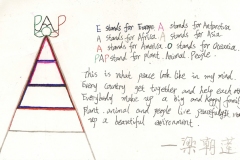 PAP
E stands for Europe A stands for Antarctica
A stands for Africa A stands for Asia
A stands for America O stands for Oceania.
PAP stand for plant. Animal. People.
This is what peace look like in my mind.
Every Country get together and help each other
Everybody make up a big and happy family
Plant, animal and people live peacefully
up a beautiful environment.